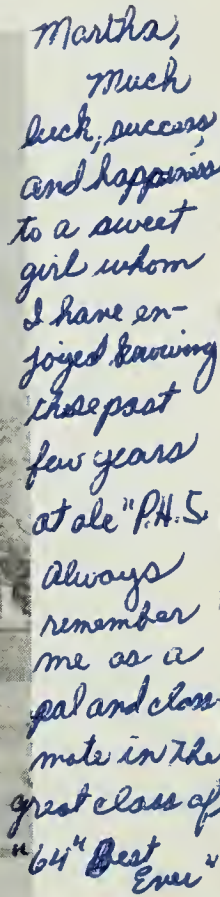 Martha,
Much
luck, success
and happiness
to a sweet
girl whom
I have en-
joyed knowing
these past
few years
at ole "P.H.S.
Always
remember
me as a
pal and class-
mate in the
great class of
"64" Best
Ever"